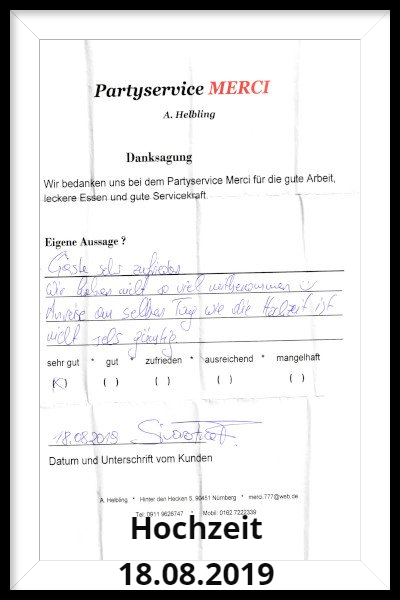 Partyservice MERCI
A. Helbling
Danksagung
Wir bedanken uns bei dem Partyservice Merci für die gute Arbeit,
leckere Essen und gute Servicekraft.
Eigene Aussage ?
Gäste sehr zufrieden
Wir haben nicht so viel mitbekommen
Anreise am selben Tag wie die Hochzeit ist
nicht sehr günstig.
sehr gut * gut * zufrieden * ausreichend * mangelhaft
(X) ( ) ( ) ( ) ( )
18.08.2019
Datum und Unterschrift vom Kunden
A. Helbling * Hinter den Hecken 5, 90451 Nürnberg * merci.777@web.de
Tel: 0911 9626747 * Mobil: 0162 7222339
Hochzeit
18.08.2019